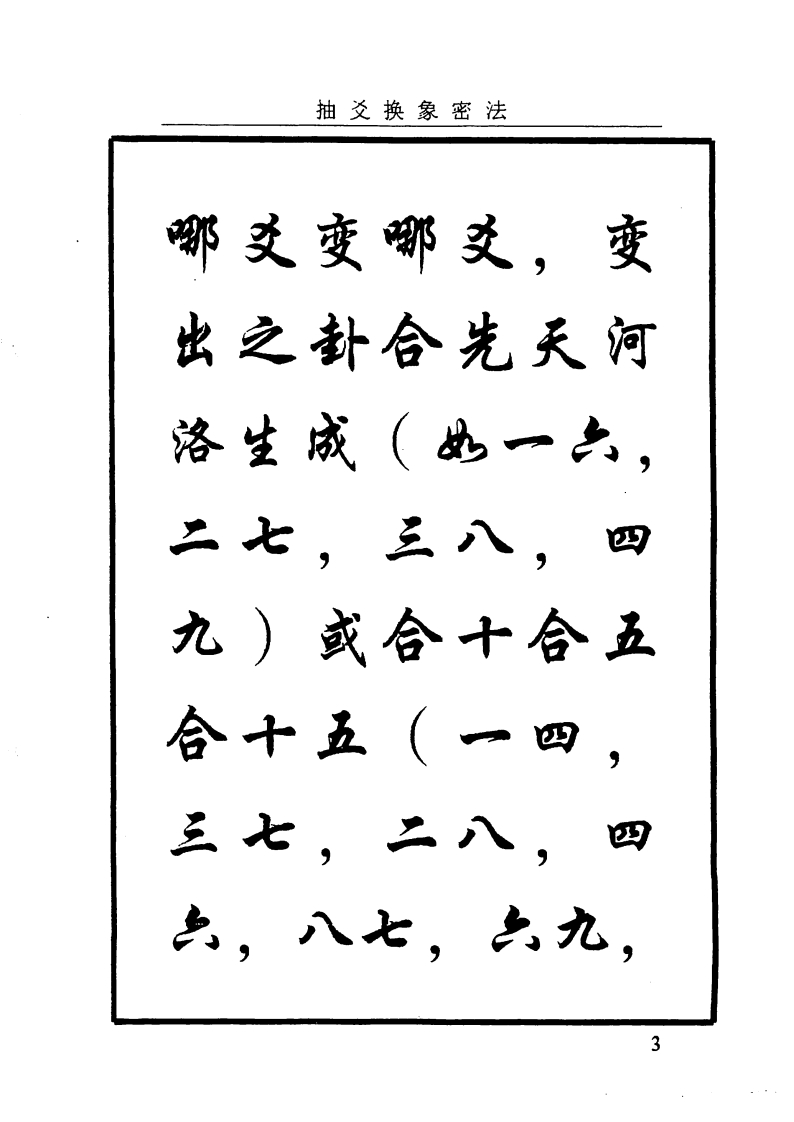 抽爻换象密法
哪爻变哪爻，变
出之卦合先天河
洛生成（如一六，
二七，三八，四
九）或合十合五
合十五（一四，
三七，二八，四
六，八七，六九，
3